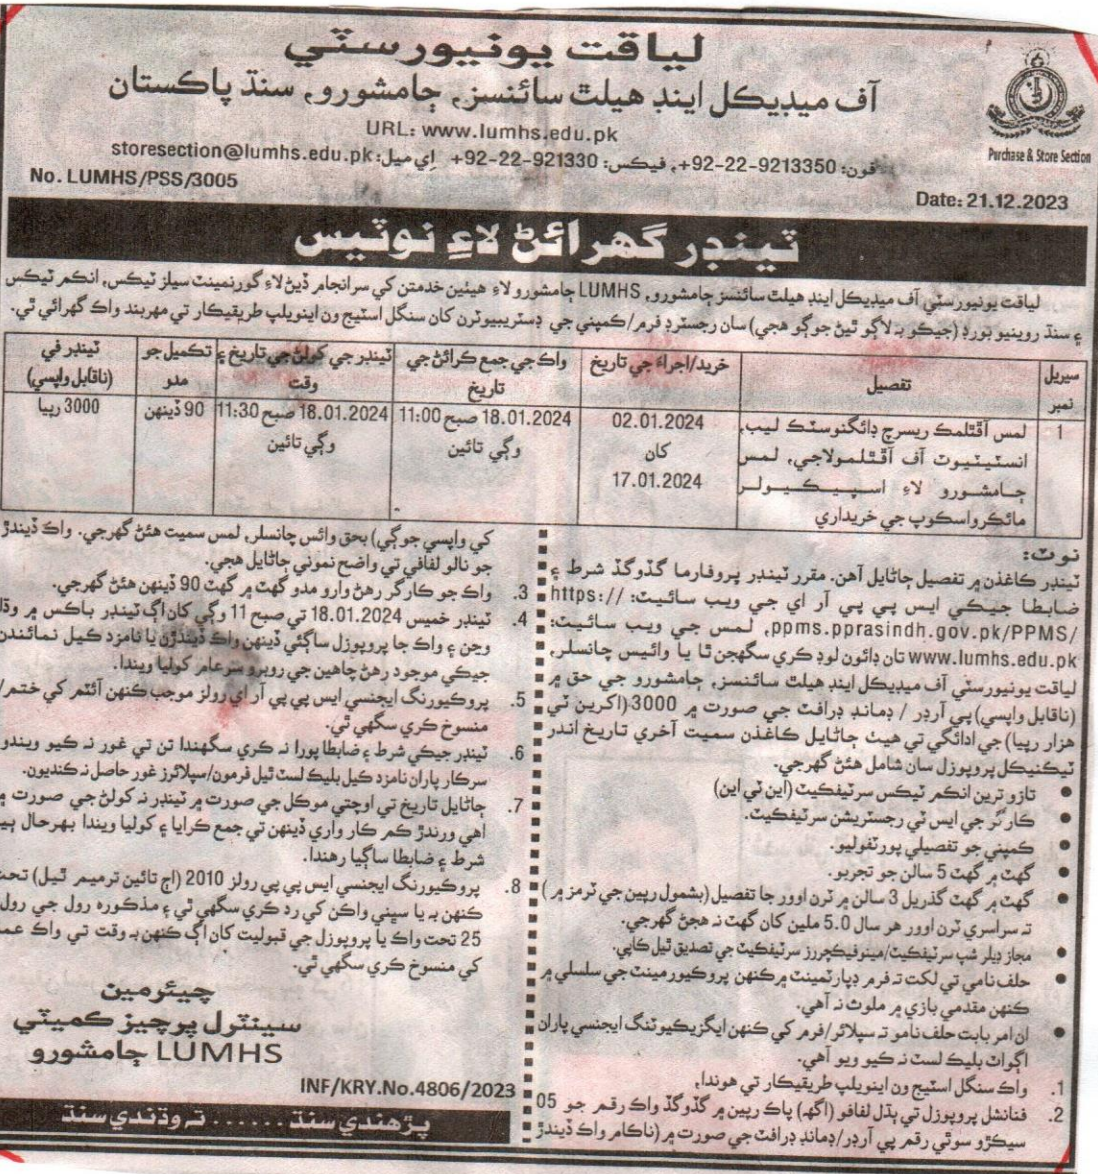 لياقت يونيورسٽي
آف ميڊيڪل اينڊ هيلٿ سائنسز، ڄامشورو، سنڌ پاڪستان
URL: www.lumhs.edu.pk
فون: 92-22-9213350+، فيڪس: 92-22-921330+ اِي ميل: storesection@lumhs.edu.pk
Purchase & Store Section
No. LUMHS/PSS/3005
Date: 21.12.2023
ٽينڊر گهرائڻ لاءِ نوٽيس
لياقت يونيورسٽي آف ميڊيڪل اينڊ هيلٿ سائنسز ڄامشورو، LUMHS ڄامشورو لاءِ هيٺين خدمتن کي سرانجام ڏيڻ لاءِ گورنمينٽ سيلز ٽيڪس، انڪم ٽيڪس
۽ سنڌ روينيو بورڊ (جيڪو به لاڳو ٿيڻ جوڳو هجي) سان رجسٽرڊ فرم/ڪمپني جي ڊسٽريبيوٽرن کان سنگل اسٽيج ون اينويلپ طريقيڪار تي مهربند واڪ گهرائي ٿي.
سيريل نمبر
تفصيل
خريد/اجراءَ جي تاريخ
واڪ جي جمع ڪرائڻ جي تاريخ
ٽينڊر جي کولڻ جي تاريخ ۽ وقت
تڪميل جو مدو
ٽينڊر في (ناقابل واپسي)
1
لمس آفٿلمڪ ريسرچ ڊائگنوسٽڪ ليب،
انسٽيٽيوٽ آف آفٿلمولاجي، لمس
ڄامشورو لاءِ اسپيڪيولر
مائڪرو اسڪوپ جي خريداري
02.01.2024
کان
17.01.2024
18.01.2024 صبح 11:00
وڳي تائين
18.01.2024 صبح 11:30
وڳي تائين
90 ڏينهن
3000 رپيا
نوٽ:
ٽينڊر ڪاغذن ۾ تفصيل ڄاڻايل آهن. مقرر ٽينڊر پروفارما گڏوگڏ شرط ۽
ضابطا جيڪي ايس پي پي آر اي جي ويب سائيٽ: https://
ppms.pprasindh.gov.pk/PPMS/، لمس جي ويب سائيٽ:
www.lumhs.edu.pk تان ڊائون لوڊ ڪري سگهجن ٿا يا وائيس چانسلر،
لياقت يونيورسٽي آف ميڊيڪل اينڊ هيلٿ سائنسز، ڄامشورو جي حق ۾
(ناقابل واپسي) پي آرڊر / ڊمانڊ ڊرافٽ جي صورت ۾ 3000 (اکرين ٽي
هزار رپيا) جي ادائگي تي هيٺ ڄاڻايل ڪاغذن سميت آخري تاريخ اندر
ٽيڪنيڪل پروپوزل سان شامل هئڻ گهرجي.
● تازو ترين انڪم ٽيڪس سرٽيفڪيٽ (اين ٽي اين)
● ڪارگر جي ايس ٽي رجسٽريشن سرٽيفڪيٽ.
● ڪمپني جو تفصيلي پورٽفوليو.
● گهٽ ۾ گهٽ 5 سالن جو تجربو.
● گهٽ ۾ گهٽ گذريل 3 سالن ۾ ٽرن اوور جا تفصيل (بشمول رپين جي ٽرمز ۾)
ته سراسري ٽرن اوور هر سال 5.0 ملين کان گهٽ نه هجڻ گهرجي.
● مجاز ڊيلر شپ سرٽيفڪيٽ/مينوفيڪچررز سرٽيفڪيٽ جي تصديق ٿيل ڪاپي.
● حلف نامي تي لکت ته فرم ڊپارٽمينٽ ۾ ڪنهن پروڪيورمينٽ جي سلسلي ۾
ڪنهن مقدمي بازي ۾ ملوث نه آهي.
● ان امر بابت حلف نامو ته سپلائر/فرم کي ڪنهن ايگزيڪيوٽنگ ايجنسي پاران
اڳواٽ بليڪ لسٽ نه ڪيو ويو آهي.
1. واڪ سنگل اسٽيج ون اينويلپ طريقيڪار تي هوندا،
2. فنانشل پروپوزل تي ٻڌل لفافو (اگهه) پاڪ رپين ۾ گڏوگڏ واڪ رقم جو 05
سيڪڙو سوٿي رقم پي آرڊر/ڊمانڊ ڊرافٽ جي صورت ۾ (ناڪام واڪ ڏيندڙ
کي واپسي جوڳي) بحق وائس چانسلر، لمس سميت هئڻ گهرجي. واڪ ڏيندڙ
جو نالو لفافي تي واضح نموني ڄاڻايل هجي.
3. واڪ جو ڪارگر رهڻ وارو مدو گهٽ ۾ گهٽ 90 ڏينهن هئڻ گهرجي.
4. ٽينڊر خميس 18.01.2024 تي صبح 11 وڳي کان اڳ ٽينڊر باڪس ۾ وڌا
وڃن ۽ واڪ جا پروپوزل ساڳئي ڏينهن واڪ ڏيندڙن يا نامزد ڪيل نمائندن
جيڪي موجود رهڻ چاهين جي روبرو سرعام کوليا ويندا.
5. پروڪيورنگ ايجنسي ايس پي پي آر اي رولز موجب ڪنهن آئٽم کي ختم/
منسوخ ڪري سگهي ٿي.
6. ٽينڊر جيڪي شرط ۽ ضابطا پورا نه ڪري سگهندا تن تي غور نه ڪيو ويندو
سرڪار پاران نامزد ڪيل بليڪ لسٽ ٿيل فرمون/سپلائرز غور حاصل نه ڪنديون.
7. ڄاڻايل تاريخ تي اوچتي موڪل جي صورت ۾ ٽينڊر نه کولڻ جي صورت ۾
اهي ورندڙ ڪم ڪار واري ڏينهن تي جمع ڪرايا ۽ کوليا ويندا بهرحال ٻيا
شرط ۽ ضابطا ساڳيا رهندا.
8. پروڪيورنگ ايجنسي ايس پي پي رولز 2010 (اڄ تائين ترميم ٿيل) تحت
ڪنهن به يا سڀني واڪن کي رد ڪري سگهي ٿي ۽ مذڪوره رول جي رول
25 تحت واڪ يا پروپوزل جي قبوليت کان اڳ ڪنهن به وقت تي واڪ عمل
کي منسوخ ڪري سگهي ٿي.
چيئرمين
سينٽرل پرچيز ڪميٽي
LUMHS ڄامشورو
INF/KRY.No.4806/2023
پڙهندي سنڌ...... ته وڌندي سنڌ